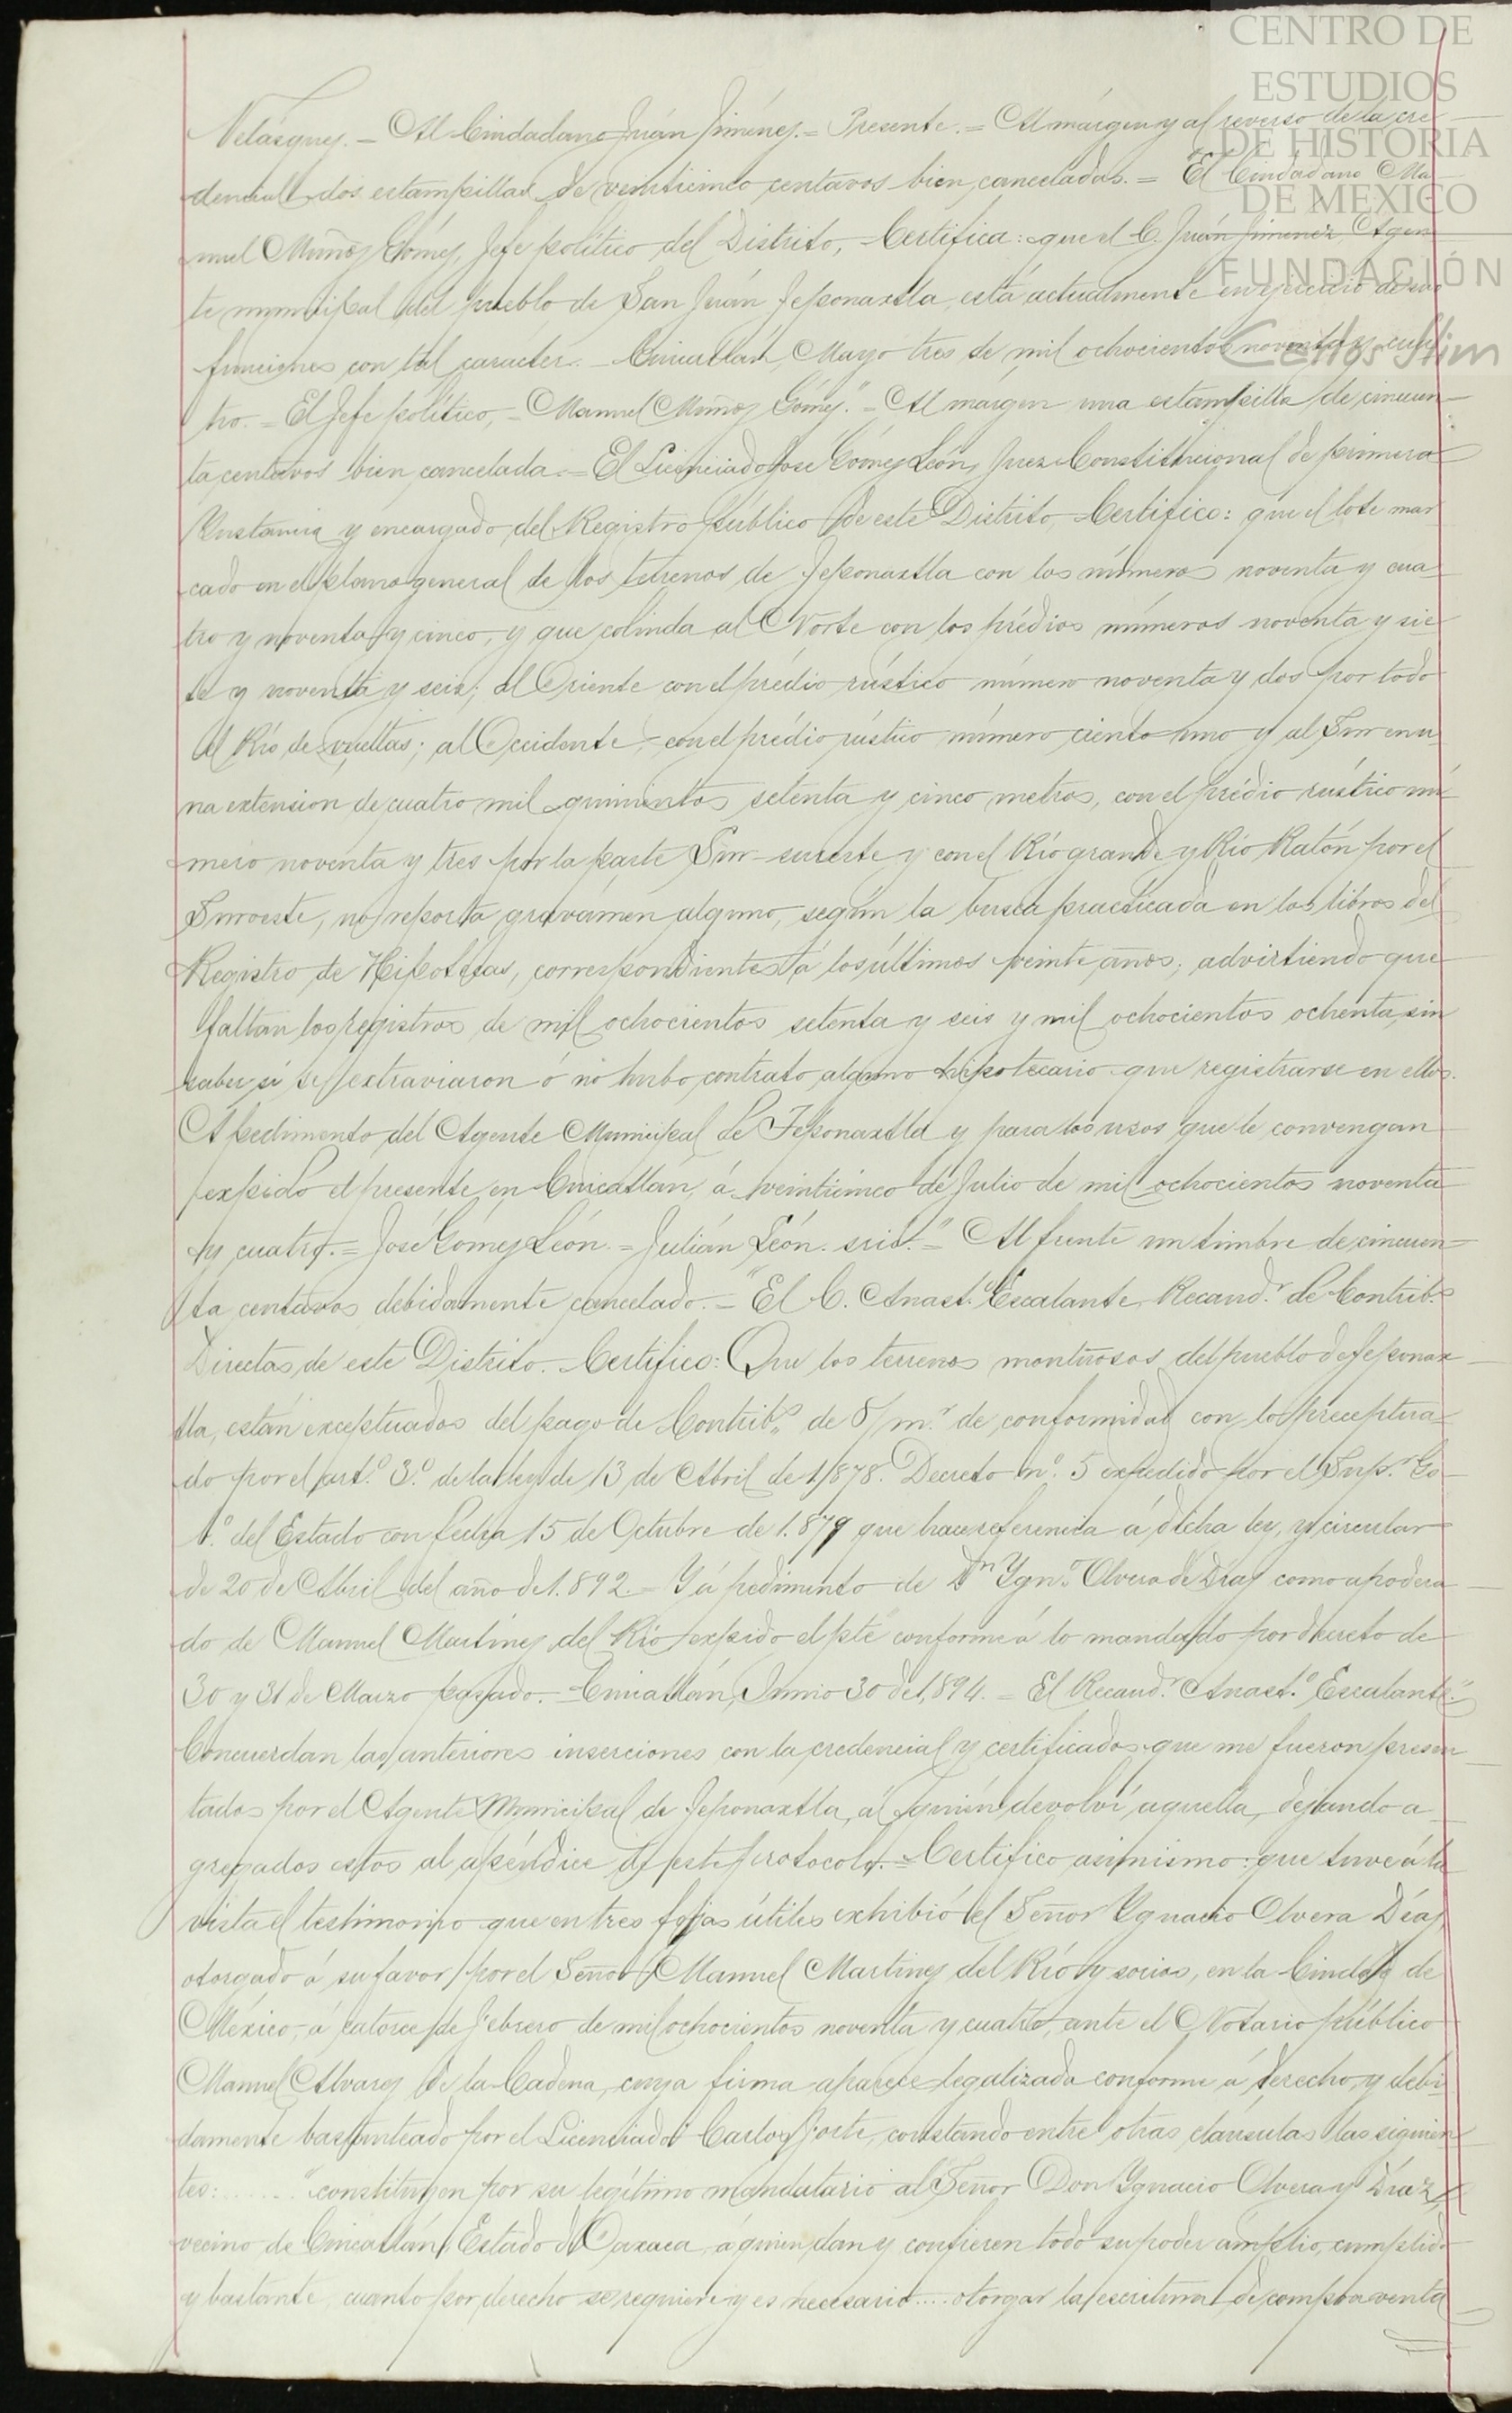 CENTRO DE
ESTUDIOS
DE HISTORIA
DE MEXICO
FUNDACIÓN
Carlos Slim
Velásquez. – Al Ciudadano Juán Jiménez. = Presente. = Al márgen y al reverso de la cre-
dencial dos estampillas de veinticinco centavos bien canceladas. = "El Ciudadano Ma-
nuel Muñoz Gómez, Jefe político del Distrito, Certifica: que el C. Juán Jimenez Agen-
te municipal del pueblo de San Juán Teponaxtla, está actualmente en ejercicio de sus
funciones con tal caracter. – Cuicatlán, Mayo tres de mil ochocientos noventa y cua-
tro. = El Jefe político, – Manuel Muñoz Gómez." = Al márgen una estampilla de cincuen-
ta centavos bien cancelada. = El Licenciado José Gómez León, Juez Constitucional de primera
Instancia y encargado del Registro público de este Distrito, Certifico: que el lote mar-
cado en el plano general de los terrenos de Teponaxtla con los números noventa y cua-
tro y noventa y cinco, y que colinda al Norte con los prédios números noventa y sie-
te y noventa y seis; al Oriente con el prédio rústico número noventa y dos por todo
el Río de vueltas; al Occidente, con el prédio rústico número ciento uno y al Sur en u-
na extension de cuatro mil quinientos setenta y cinco metros, con el prédio rústico nú-
mero noventa y tres por la parte Sur-sureste y con el Río grande y Río Ratón por el
Suroeste, no reporta gravámen alguno, según la busca practicada en los libros del
Registro de Hipotecas, correspondientes á los últimos veinte años; advirtiendo que
faltan los registros de mil ochocientos setenta y seis y mil ochocientos ochenta, sin
saber si se extraviaron ó no hubo contrato alguno hipotecario que registrarse en ellos.
A pedimento del Agente Municipal de Teponaxtla y para los usos que le convengan
expido el presente en Cuicatlán, á veinticinco de Julio de mil ochocientos noventa
y cuatro. = José Gómez León. = Julián León. srio." = Al frente un timbre de cincuen-
ta centavos debidamente cancelado. = "El C. Anast.º Escalante, Recaud.r de Contrib.s
Directas de este Distrito. Certifico: Que los terrenos montuosos del pueblo de Teponax-
tla, están exceptuados del pago de Contrib.n de 8/m.r de conformidad con lo preceptua-
do por el art.º 3.º de la ley de 13 de Abril de 1,878. Decreto n.º 5 expedido por el Sup.r Go-
b.º del Estado con fecha 15 de Octubre de 1.879 que hace referencia á dicha ley, y circular
de 20 de Abril del año de 1.892. = Y á pedimento de Dn Ygn.º Olvera de Diaz como apodera-
do de Manuel Martínez del Río expido el pte conforme á lo mandado por decreto de
30 y 31 de Marzo pasado. – Cuicatlán, Junio 30 de 1,894. = El Recaud.r Anast.º Escalante."
Concuerdan las anteriores inserciones con la credencial y certificados que me fueron presen-
tados por el Agente Municipal de Teponaxtla, á quién devolví aquella, dejando a-
gregados estos al apéndice de este protocolo. = Certifico asimismo: que tuve á la
vista el testimonio que en tres fojas útiles exhibió el Señor Ygnacio Olvera Díaz,
otorgado á su favor por el Señor Manuel Martinez del Río y socios, en la Ciudad de
México, á catorce de Febrero de mil ochocientos noventa y cuatro, ante el Notario público
Manuel Alvarez de la Cadena, cuya firma aparece legalizada conforme á derecho, y debi-
damente bastanteado por el Licenciado Carlos, constando entre otras cláusulas las siguien-
tes: ...... "constituyen por su legítimo mandatario al Señor Don Ygnacio Olvera y Díaz,
vecino de Cuicatlán, Estado de Oaxaca, á quien dan y confieren todo su poder ámplio, cumplido
y bastante, cuanto por derecho se requiere y es necesario .... otorgar la escritura de compraventa